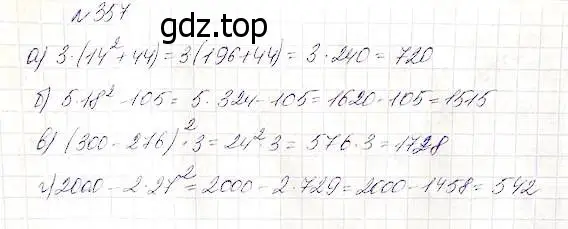 №357
gdz.top
а) 3·(14²+44)=3(196+44)=3·240=720
б) 5·18²-105=5·324-105=1620-105=1515
в) (300-276)²·3=24²·3=576·3=1728
г) 2000-2·27²=2000-2·729=2000-1458=542